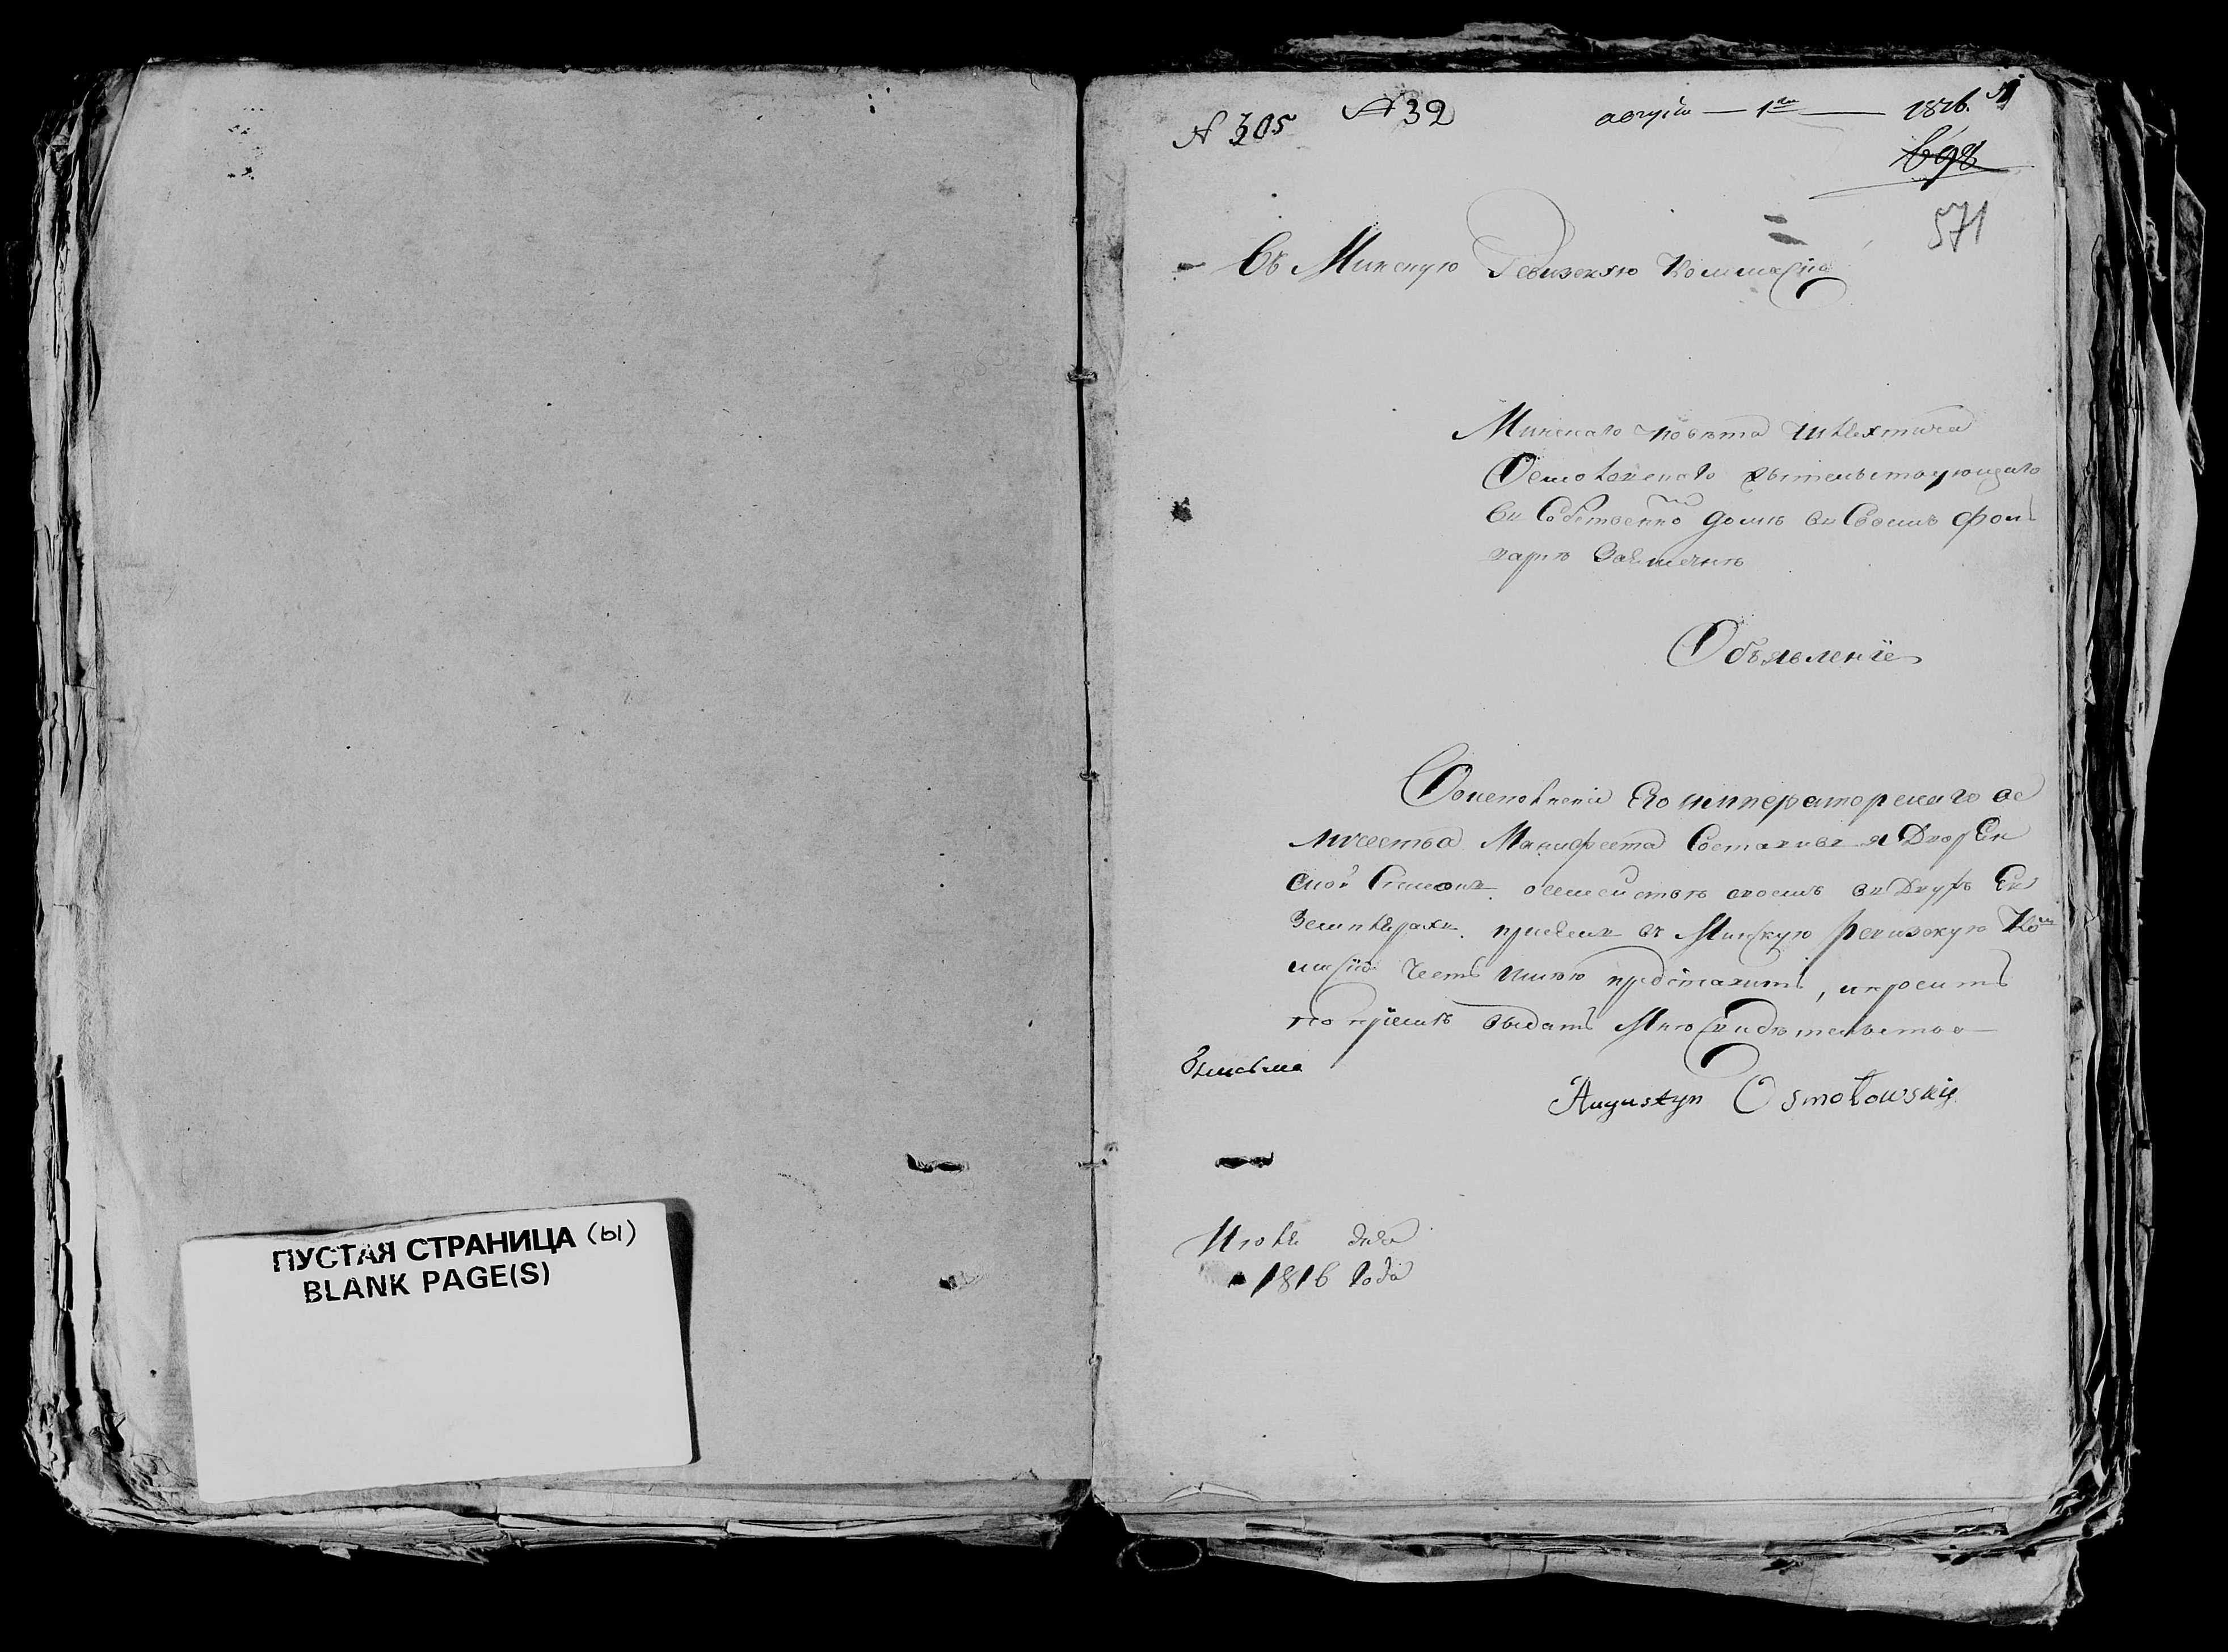 ПУСТАЯ СТРАНИЦА (ы)
BLANK PAGE(S)
№ 305 № 32 август — 1го — 1816.
698
571
Въ Минскую Ревизскую Коммисiю
Минскаго повѣта Шляхтича
Осмоловскаго жительствующаго
въ Собственно домѣ въ Своемъ фоль
варкѣ
Объявленiе
Воисполненiе Его императорскаго ве
личества Манифеста Составивъ я
Списокъ о семействѣ своемъ въ Двухъ Ек
земплярахъ. при семъ въ Минскую ревизскую Ком
мисiю Честь имѣю представить, и просить
по прiемѣ выдать Мнѣ Свидѣтельство
Augustyn Osmołowski
Июля дня
1816 года